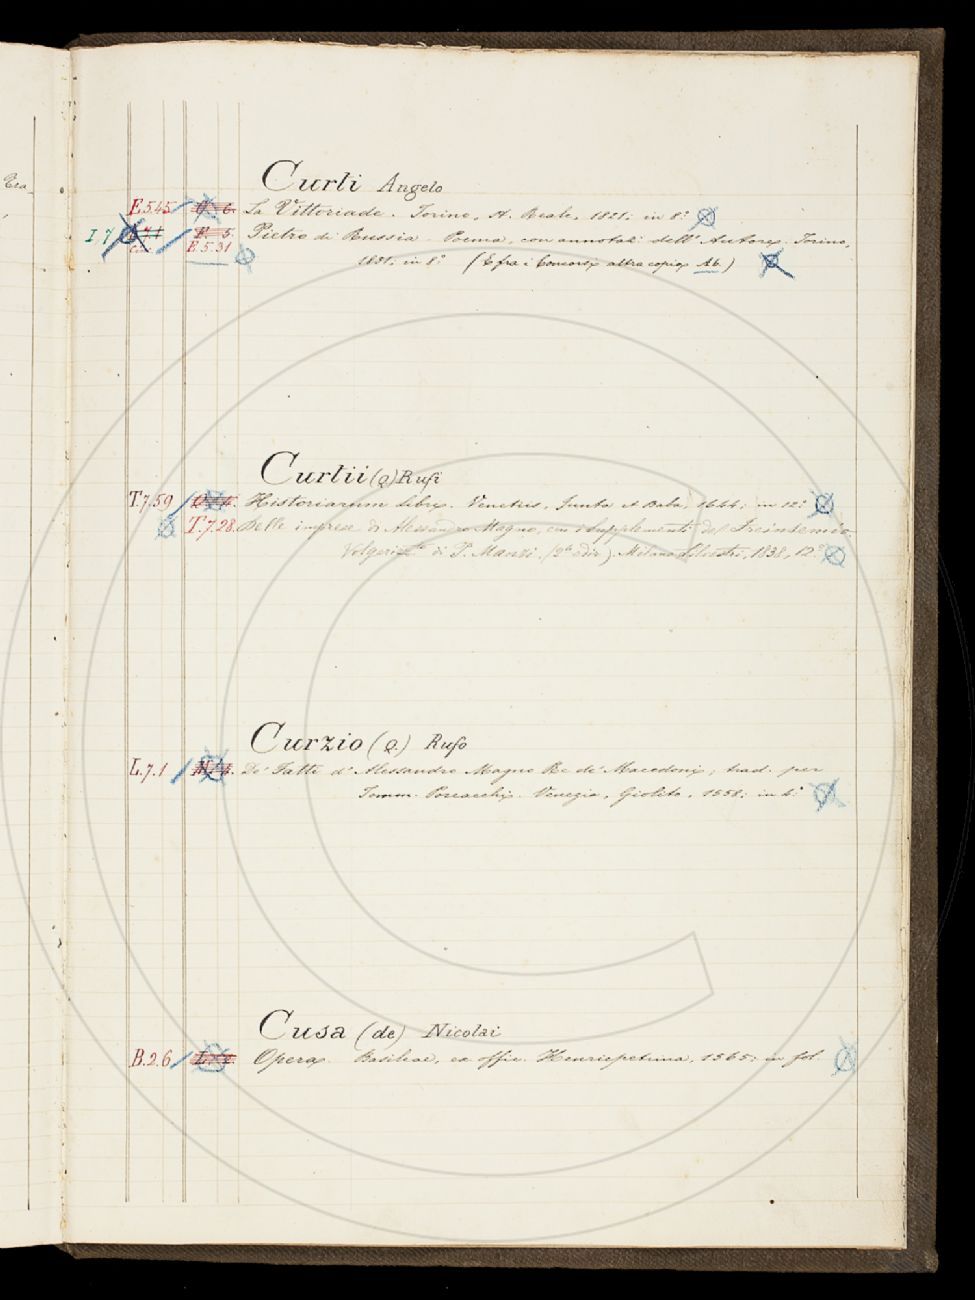 Curti Angelo
E.5.45 La Vittoriade. Torino, A. Reale, 1821; in 8.°
I.7 F 5. Pietro di Russia. Poema, con annotaz: dell' Autore. Torino,
E.5.31
1831, in 8° (E fra i Concorsi altra copia Ab.)
Curtii (Q) Rufi
T.7.59 Historiarum libri. Venetiis, Junta et Baba, 1644; in 12.°
T.7.28. Delle imprese di Alessandro Magno, con i supplementi del
di T. Manzi. (2ª ediz) Milano Silvestri, 1838, 12.°
Curzio (Q.) Rufo
L.7.1 De' Fatti d'Alessandro Magno Re de' Macedoni; trad. per
Tomm. Porcacchi. Venezia, Giolito, 1558; in 4.°
Cusa (de) Nicolai
B.2.6 Opera. Basileae, ex offic. Henricpetrina, 1565; in fol.